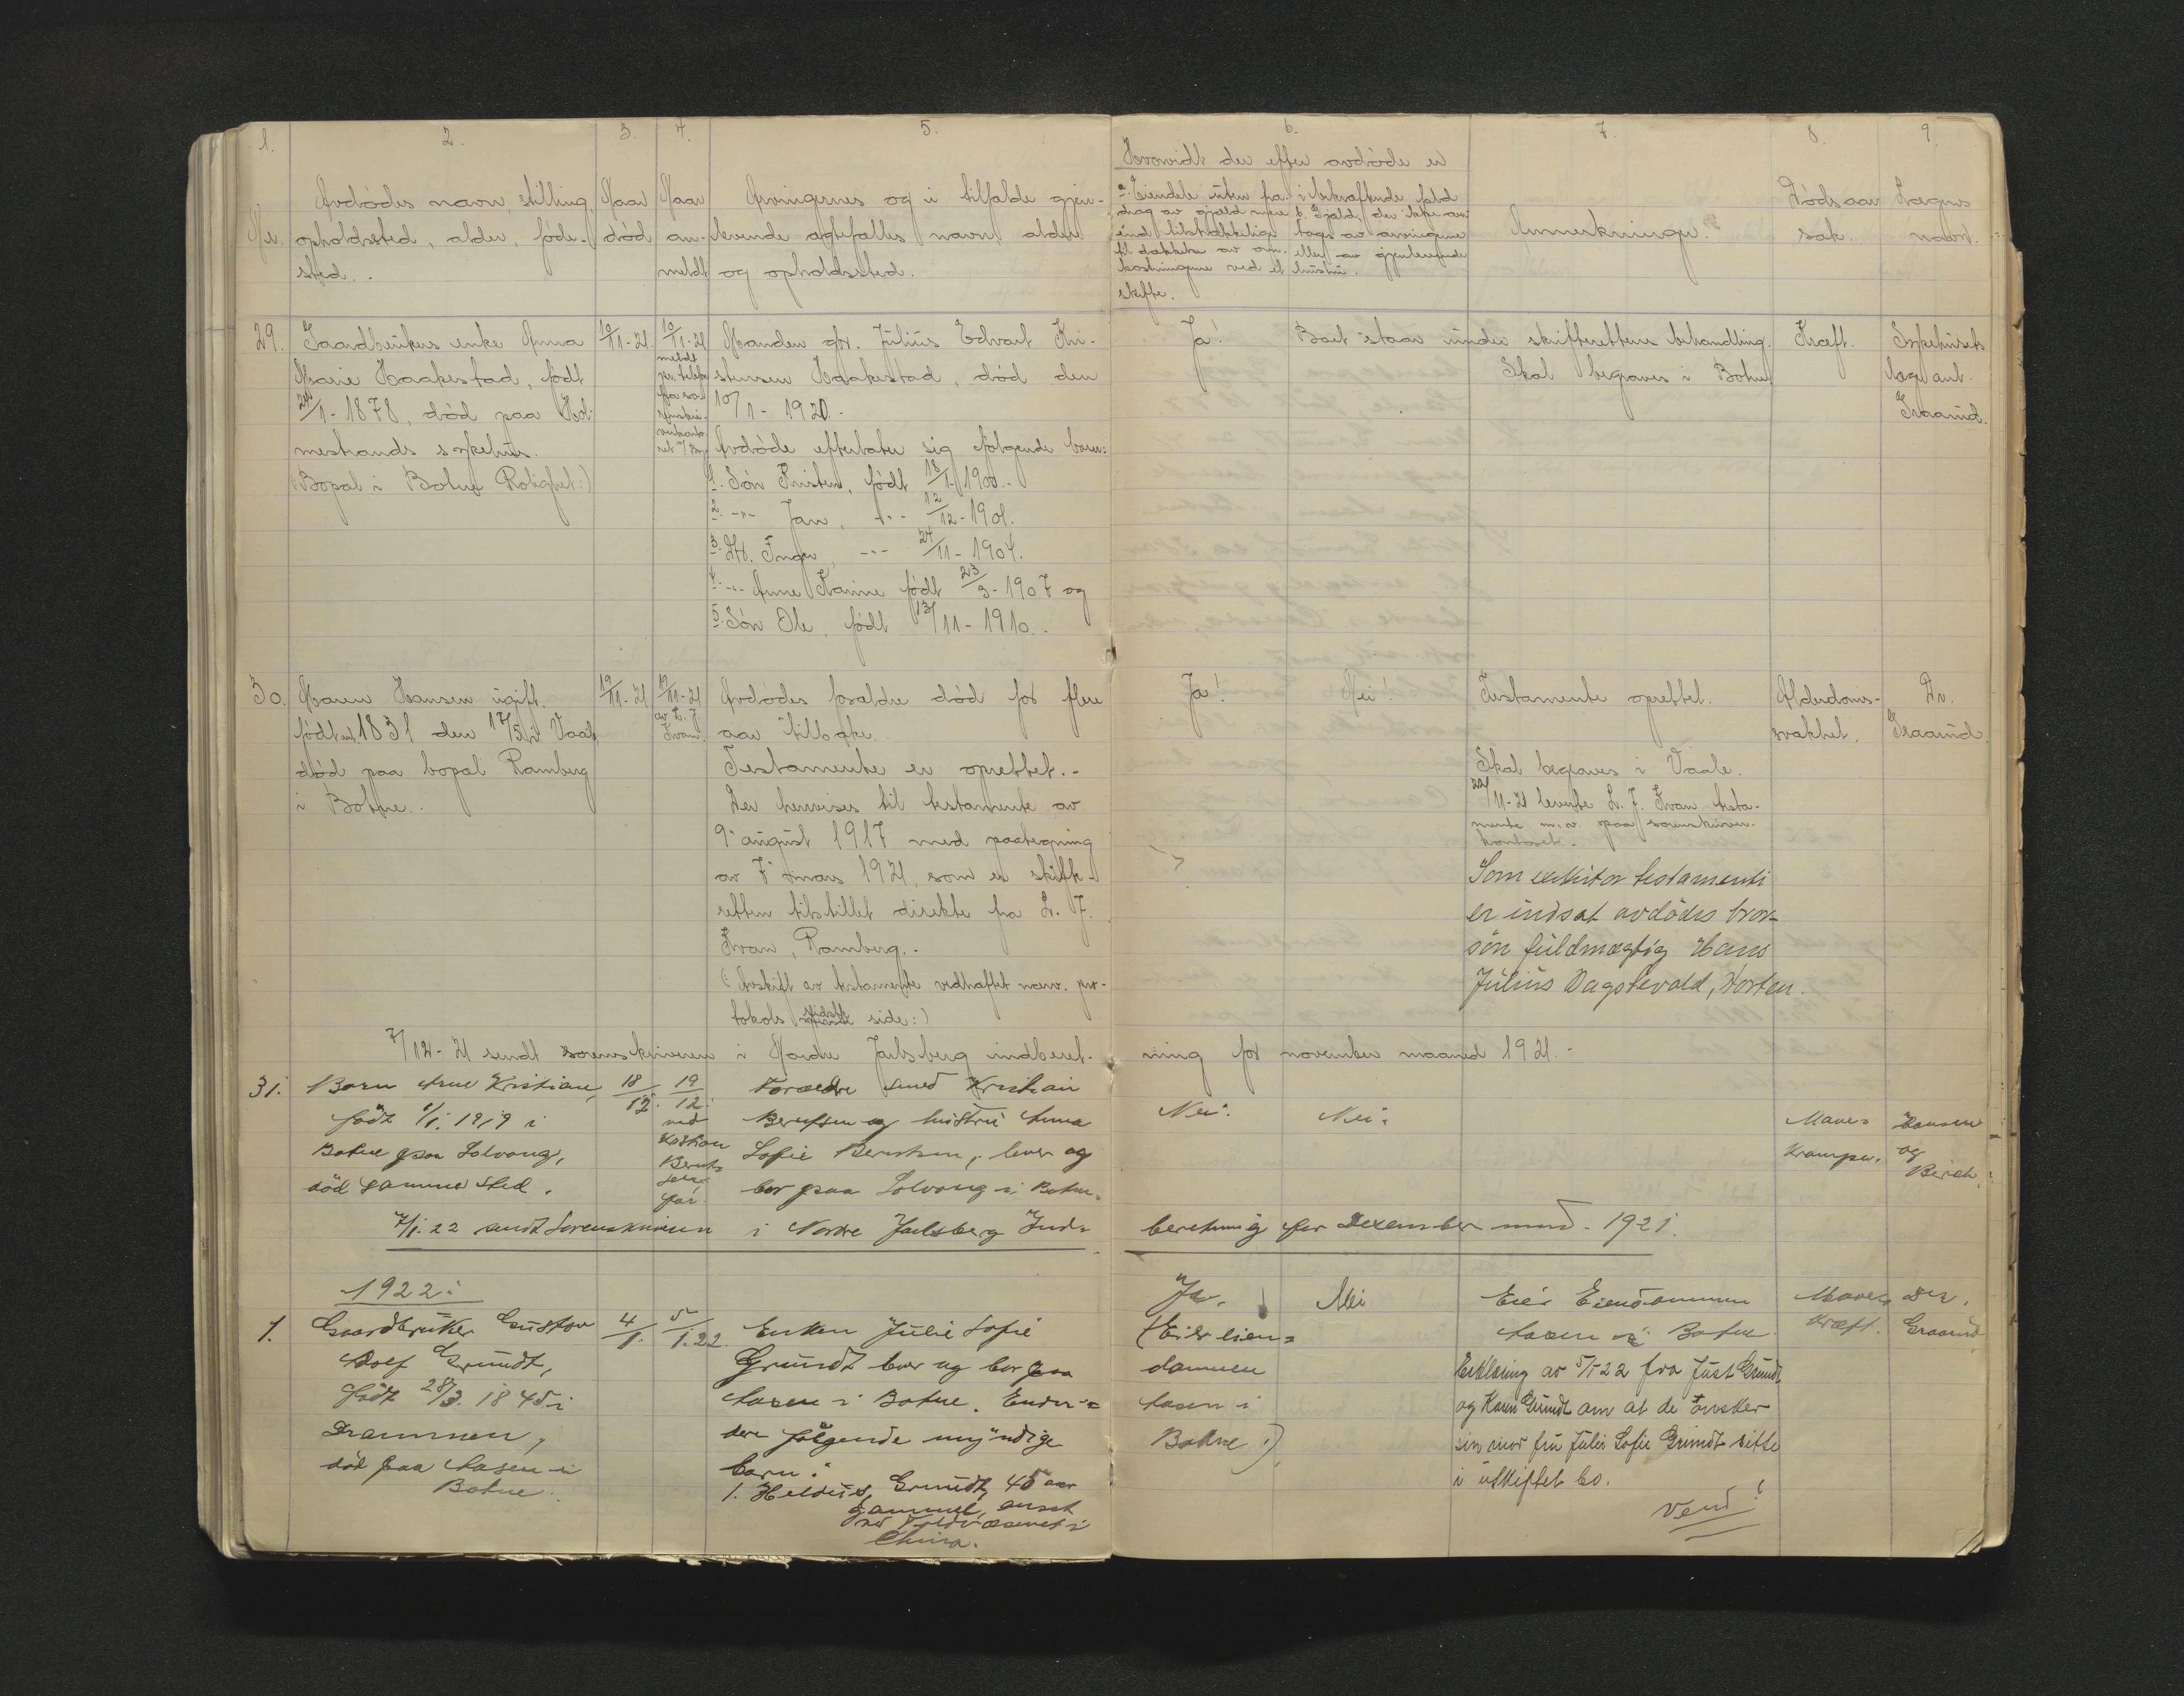 1. 2. 3. 4. 5. 6. 7. 8. 9.
Nr.
Avdödes navn, stilling,
opholdssted, alder, föde-
sted.
Naar
död
Naar
an-
meldt
Arvingernes og i tilfælde gjen-
levende ægtefælles navn, alder
og opholdssted.
Hvorvidt der efter avdöde er
a. Eiendele uten fra-
drag av gjæld mere
end tilstrækkelige
til dækkelse av om-
kostningene ved et
skifte.
i bekræftende fald
b. Gjæld, der ikke an-
tages av arvingene
eller av gjenlevende
hustru.
Anmerkninger.
Dödsaar
sak.
Lægens
navn.
29.
Gaardbrukers enke Anna
Marie Haakestad, födt
24/1-1878, död paa Hol-
mestrands sykehus.
(:Bopal i Botne Rolighet:)
10/11-21.
10/11-21
meldt
per telefon
fra sorenskri-
Manden gbr. Julius Edvart Kri-
stensen Haakestad, död den
10/1-1920.-
Avdöde efterlater sig fölgende barn:
1. Sön Kristen, födt 18/1-1900.-
2. -"- Jan, -"- 12/12-1901.
3. Dtt. Inger, -"- 24/11-1904.
4. -"- Anne Karine födt 23/3-1907 og
5. Sön Ole, födt 13/11-1910.-
Ja!
Boet staar under skifterettens behandling.
Skal begraves i Botne.
Kræft.
Sykehusets
læge ant.
Graarud.
30.
Maren Hansen ugift.
födt 1831 den 17/5 i Vaale
död paa bopal Ramberg
i Botne.
19/11-21
19/11-21
av L. J.
Kvan.
Avdödes forældre död for flere
aar tilbake.
Testamente er oprettet.-
Der henvises til testamente av
9. august 1917 med paategning
av 7. mars 1921, som er skifte-
retten tilstillet direkte fra L. J.
Kvan, Ramberg.-
(: Avskrift av testamente vedhæftet nærv. pro-
tokols sidste side:)
Ja!
Nei!
Testamente oprettet.
Skal begraves i Vaale.
22/11-21 leverte L. J. Kvan testa-
mente m.v. paa sorenskriver-
kontoret.-
Som exekutor testamenti
er indsat avdödes bror-
sön fuldmægtig Hans
Julius Dagslevald, Horten.
Alderdoms-
svakhet.
Dr.
Graarud.
7/12-21 sendt sorenskriveren i Nordre Jarlsberg indberet-
ning for november maaned 1921.-
31.
Barn Arne Kristian,
födt 1/1.1919 i
Botne paa Solvang,
död samme sted.
18/12.
19/12.
ved
Kristian
Bernt-
sen,
far.
Foreldre smed Kristian
Berntsen og hustru Anna
Sofie Berntsen, lever og
bor paa Solvang i Botne.
Nei.
Nei.
Mave-
krampe.
Hansen
og
Birch.
7/1.22 sendt Sorenskriveren i Nordre Jarlsberg Ind-
beretning for Dezember mnd. 1921.
1922:
1.
Gaardbruker Gustav
Adolf Grundt,
födt 28/3.1845 i
Drammen,
död paa Aasen i
Botne.
4/1.
5/1.22.
Enken Julie Sofie
Grundt lever og bor paa
Aasen i Botne. Endvi-
dere fölgende myndige
barn:
1. Grundt, 45 aar
gammel, ansat
ved i
China.
Ja.
(Eier eien-
dommen
Aasen i
Botne.)
Nei
Eier Eiendommen
Aasen i Botne.
Erklæring av 5/1-22 fra Just Grundt
og Karen Grundt om at de önsker
sin mor fru Julie Sofie Grundt sitte
i uskiftet bo.
Vend!
Mave-
kræft.
Dr.
Graarud